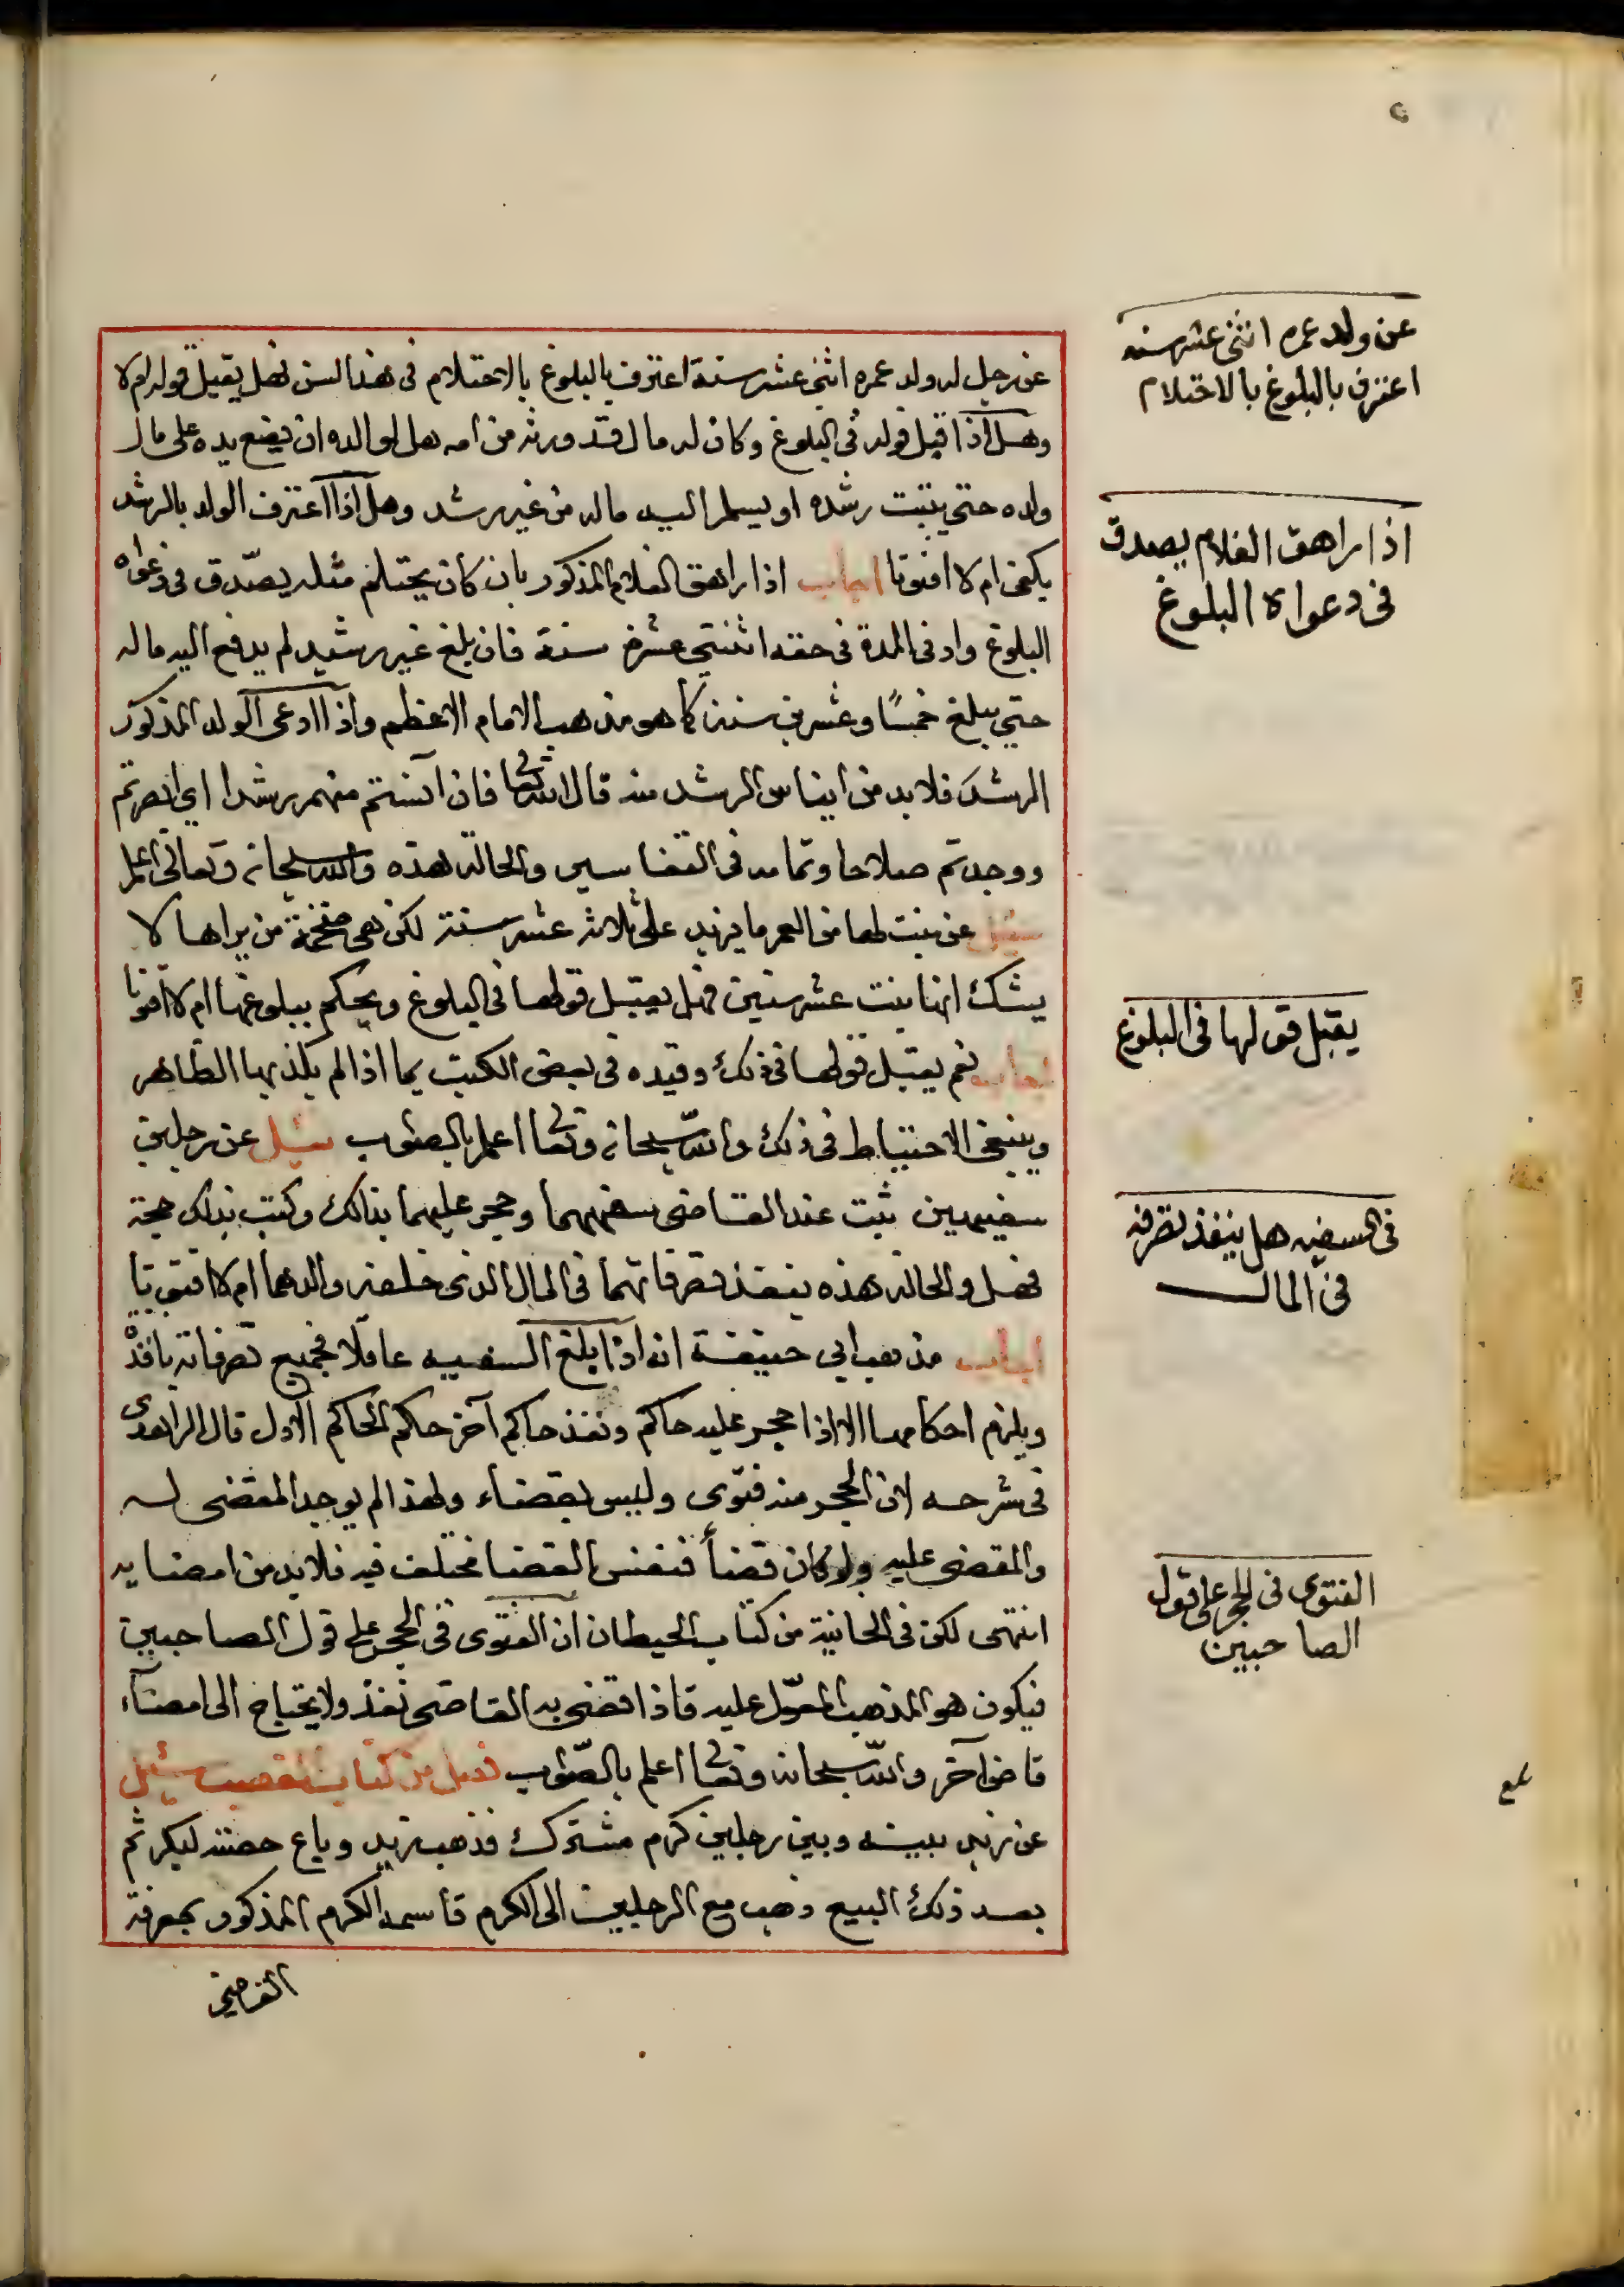 عن رجل له ولد عمره اثنى عشر سنة اعترف بالبلوغ بالاحتلام فى هذا السن فهل يقبل قوله ام لا
وهل اذا قبل قوله فى البلوغ وكان له مال قد ورثه من امه هل لوالده ان يضع يده على مال
ولده حتى يثبت رشده او يسلم اليه ماله من غير رشد وهل اذا اعترف الولد بالرشد
يكفى ام لا افتونا اجاب اذا راهق الغلام المذكور بان كان يحتلم مثله يصدّق فى دعواه
البلوغ وادنى المدة فى حقه اثنتى عشرة سنة فان بلغ غير رشيد لم يدفع اليه ماله
حتى يبلغ خمسًا وعشرين سنة كما هو مذهب الامام الاعظم واذا ادعى الولد المذكور
الرشد فلا بد من ايناس الرشد منه قال الله تعا فان آنستم منهم رشدا اي ابصرتم
ووجدتم صلاحا وتمامه فى التفاسير والحالة هذه والله سبحانه وتعالى اعلم
سئل عن بنت لها من العمر ما يزيد على ثلاثة عشر سنة لكن هى ضخمة من يراها لا
يشك انها بنت عشر سنين فهل يقبل قولها فى البلوغ ويحكم ببلوغها ام لا افتونا
اجاب نعم يقبل قولها فى ذلك وقيده فى بعض الكتب بما اذا لم يكذبها الظاهر
وينبغى الاحتياط فى ذلك والله سبحانه وتعا اعلم بالصواب سئل عن رجلين
سفيهين ثبت عند القاضى سفههما وحجر عليهما بذلك وكتب بذلك حجة
فهل والحالة هذه ينفذ تصرفاتهما فى المال الذى خلفه والدهما ام لا افتونا
اجاب مذهب ابى حنيفة انه اذا بلغ السفيه عاقلا فجميع تصرفاته نافذة
ويلزم احكامها الا اذا حجر عليه حاكم ونفذ حاكم آخر حكم الحاكم الاول قال الزاهدى
فى شرحه لان الحجر منه فتوى وليس بقضاء ولهذا لم يوجد المقضى له
والمقضى عليه ولو كان قضأ فنفس القضا مختلف فيه فلا بد من امضايه
انتهى لكن فى الخانية من كتاب الحيطان ان الفتوى فى الحجر على قول الصاحبين
فيكون هو المذهب المعوّل عليه فاذا قضى به القاضى نفذ ولا يحتاج الى امضآء
قاض آخر والله سبحانه وتعا اعلم بالصّواب فصل من كتاب الغصب سئل
عن زيد بينه وبين رجلين كرم مشترك فذهب زيد وباع حصته لبكر ثم
بعد ذلك البيع ذهب مع الرجلين الى الكرم قاسمه الكرم المذكور بمعرفة
عن ولد عمره اثنى عشر سنه
اعترف بالبلوغ بالاحتلام
اذا راهق الغلام يصدق
فى دعواه البلوغ
يقبل قولها فى البلوغ
فى السفيه هل ينفذ تصرفه
فى المال
الفتوى فى الحجر على قول
الصاحبين